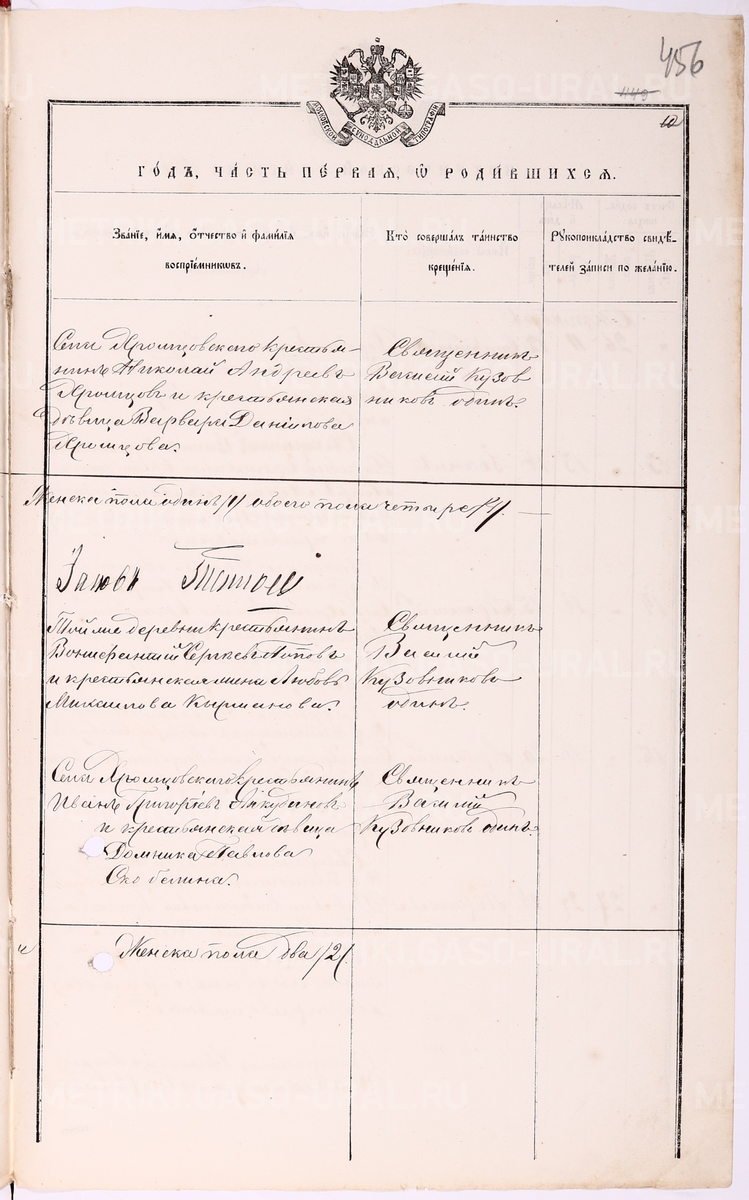 456
10
МОСКОВСКОЙ СѴНОДАЛЬНОЙ ТИПОГРАФІИ
ГО́ДЪ, ЧА́СТЬ ПЕ́РВАЯ, Ѡ҆ РОДИ́ВШИХСЯ.
Зва́нїе, и҆́мя, ѻ҆́тчество и҆ фами́лїя
воспрїе́мникѡвъ.
Кто̀ соверша́лъ та́инство
креще́нїя.
Рꙋкоприкла́дство свидѣ́-
телей за́писи по жела́нїю.
Села Яромцовскаго крестья-
нинъ Николай Андреевъ
Яромцов и крестьянская
дѣвица Варвара Данилова
Яромцова.
Священникъ
Василій Кузов
никовъ одинъ.
Женска пола одинъ /1/ обоего пола четыре /4/.
Той же деревни крестьянинъ
Вонифантій Сергѣевъ Поповъ
и крестьянская жена Любовь
Михаилова Кырманова.
Священникъ
Василій
Кузовниковъ
одинъ.
Села Яромцовскаго крестьянинъ
Иванъ Григорьевъ
и крестьянская дѣвица
Домника Павлова
Скобелина.
Священникъ
Василій
Кузовниковъ одинъ.
Женска пола два /2/.